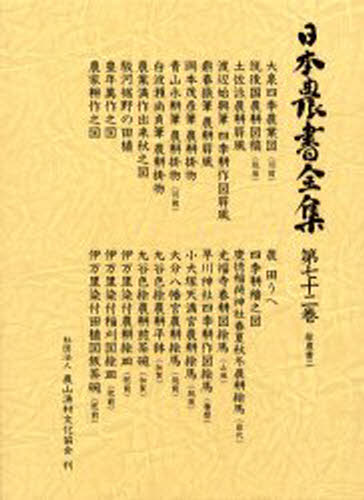 日本農書全集
第七十二巻
絵農書二
大泉四季農業図（羽前）
筑後国農耕図稿（筑後）
土佐派農耕屏風
渡辺始興筆 四季耕作図屏風
鼎春嶽筆 農耕屏風
岡本茂彦筆 農耕掛物
青山永耕筆 農耕掛物（羽前）
白波瀬尚貞筆 農耕掛物
農業満作出来秋之図
駿河裾野の田植
豊年萬作之図
農家耕作之図
農 田うへ
四季耕稼之図
慶徳稲荷神社春夏秋冬農耕絵馬（岩代）
光福寺春耕図絵馬（山城）
早川神社四季耕作図絵馬（播磨）
小犬塚天満宮農耕絵馬（筑後）
大分八幡宮農耕絵馬（筑前）
九谷色絵農耕平鉢（加賀）
九谷色絵農耕煎茶碗（加賀）
伊万里染付農耕絵皿（肥前）
伊万里染付稲刈図絵皿（肥前）
伊万里染付田植図飯茶碗（肥前）
社団法人 農山漁村文化協会 刊